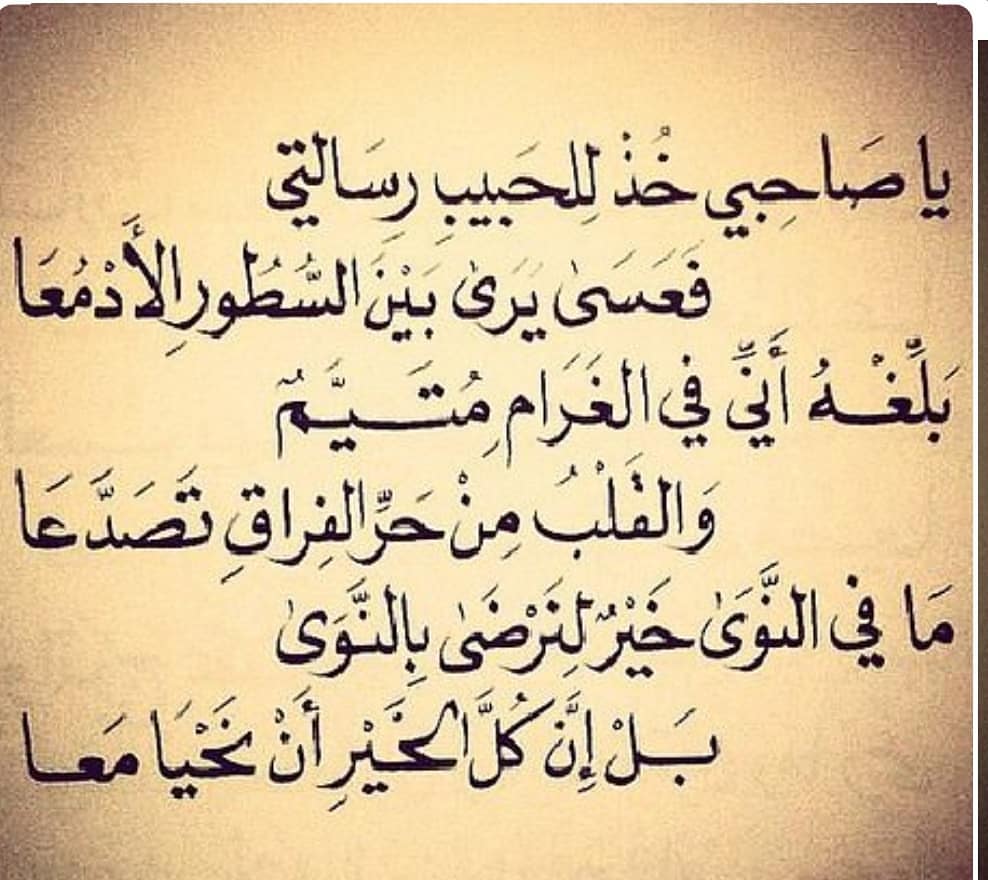 يا صَاحِبي خُذْ لِلحَبيبِ رِسَالتي
فَعَسَىٰ يَرَىٰ بَيْنَ السُّطُورِ الأَدْمُعَا
بَلِّغْهُ أَنِّي في الغَرَامِ مُتَيَّمٌ
وَالقَلْبُ مِنْ حَرِّ الفِراقِ تَصَدَّعَا
مَا في النَّوَىٰ خَيْرٌ لِنَرْضَىٰ بِالنَّوَىٰ
بَلْ إِنَّ كُلَّ الخَيْرِ أَنْ نَحْيَا مَعَا